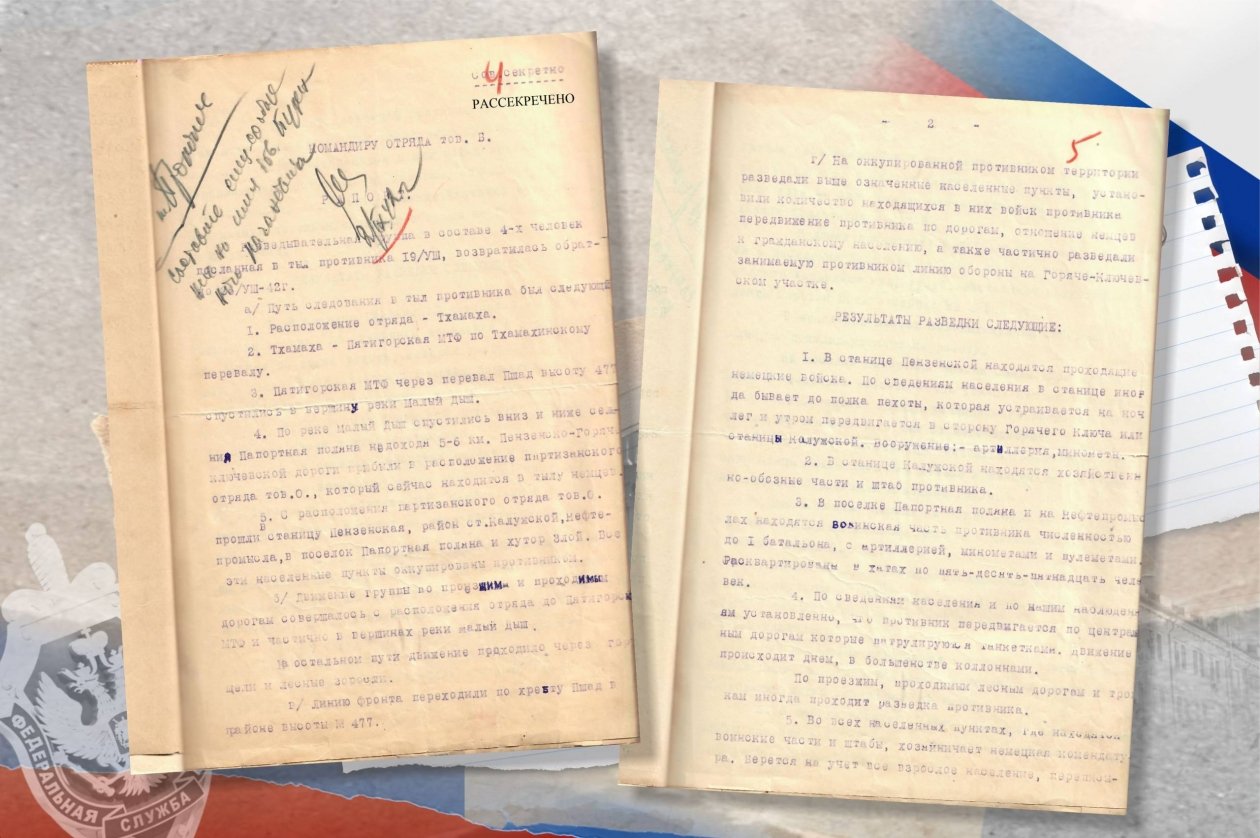 4
Сов.секретно
РАССЕКРЕЧЕНО
КОМАНДИРУ ОТРЯДА тов. Б.
Р П О
Разведывательная группа в составе 4-х человек
посланная в тыл противника 19/УШ, возвратилась обрат-
но /УШ-42г.
а/ Путь следования в тыл противника был следующий
1. Расположение отряда - Тхамаха.
2. Тхамаха - Пятигорская МТФ по Тхамахинскому
перевалу.
3. Пятигорская МТФ через перевал Пшад высоту 477
спустились в вершину реки Малый Дыш.
4. По реке малый Дыш спустились вниз и ниже селе-
ния Папортная поляна недоходя 5-6 км. Пензенско-Горяче
ключевской дороги прибыли в расположение партизанского
отряда тов.О., который сейчас находится в тылу немцев.
5. С расположения партизанского отряда тов.О.
прошли в станицу Пензенская, район ст.Калужской,Нефте-
промысла,в поселок Папортная поляна и хутор Злой. Все
эти населенные пункты оккупированы противником.
б/ Движение группы по проезжим и проходимым
дорогам совершалось с расположения отряда до Пятигорск
МТФ и частично в вершинах реки малый Дыш.
На остальном пути движение проходило через гор
щели и лесные заросли.
в/ Линию фронта переходили по хребту Пшад в
районе высоты М 477.
ФЕДЕРАЛЬНАЯ
СЛУЖБА
- 2 -
5
г/ На оккупированной противником территории
разведали выше означенные населенные пункты, устано-
вили количество находящихся в них войск противника
передвижение противника по дорогам, отношение немцев
к гражданскому населению, а также частично разведали
занимаемую противником линию обороны на Горяче-Ключев-
ском участке.
РЕЗУЛЬТАТЫ РАЗВЕДКИ СЛЕДУЮЩИЕ:
1. В станице Пензенской находятся проходящие
немецкие войска. По сведениям населения в станице иног
да бывает до полка пехоты, которая устраивается на ноч
лег и утром передвигается в сторону Горячего Ключа или
станицы Калужской. Вооружение:- артиллерия,минометы.
2. В станице Калужской находятся хозяйственн
но-обозные части и штаб противника.
3. В поселке Папортная поляна и на Нефтепромыс
лах находятся воинская часть противника численностью
до I батальона, с артиллерией, минометами и пулеметами.
Расквартированы в хатах по пять-десять-пятнадцать чело
век.
4. По сведениям населения и по нашим наблюдени
ям установленно, что противник передвигается по централь
ным дорогам которые патрулируются танкетками. Движение
происходит днем, в большенстве коллоннами.
По проезжим, проходимым лесным дорогам и троп
кам иногда проходит разведка противника.
5. Во всех населенных пунктах, где находятся
воинские части и штабы, хозяйничает немецкая комендату
ра. Берется на учет все взрослое население,